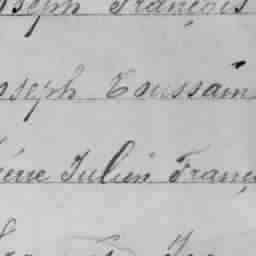 oseph François
oseph Toussain
ène Julien Franç